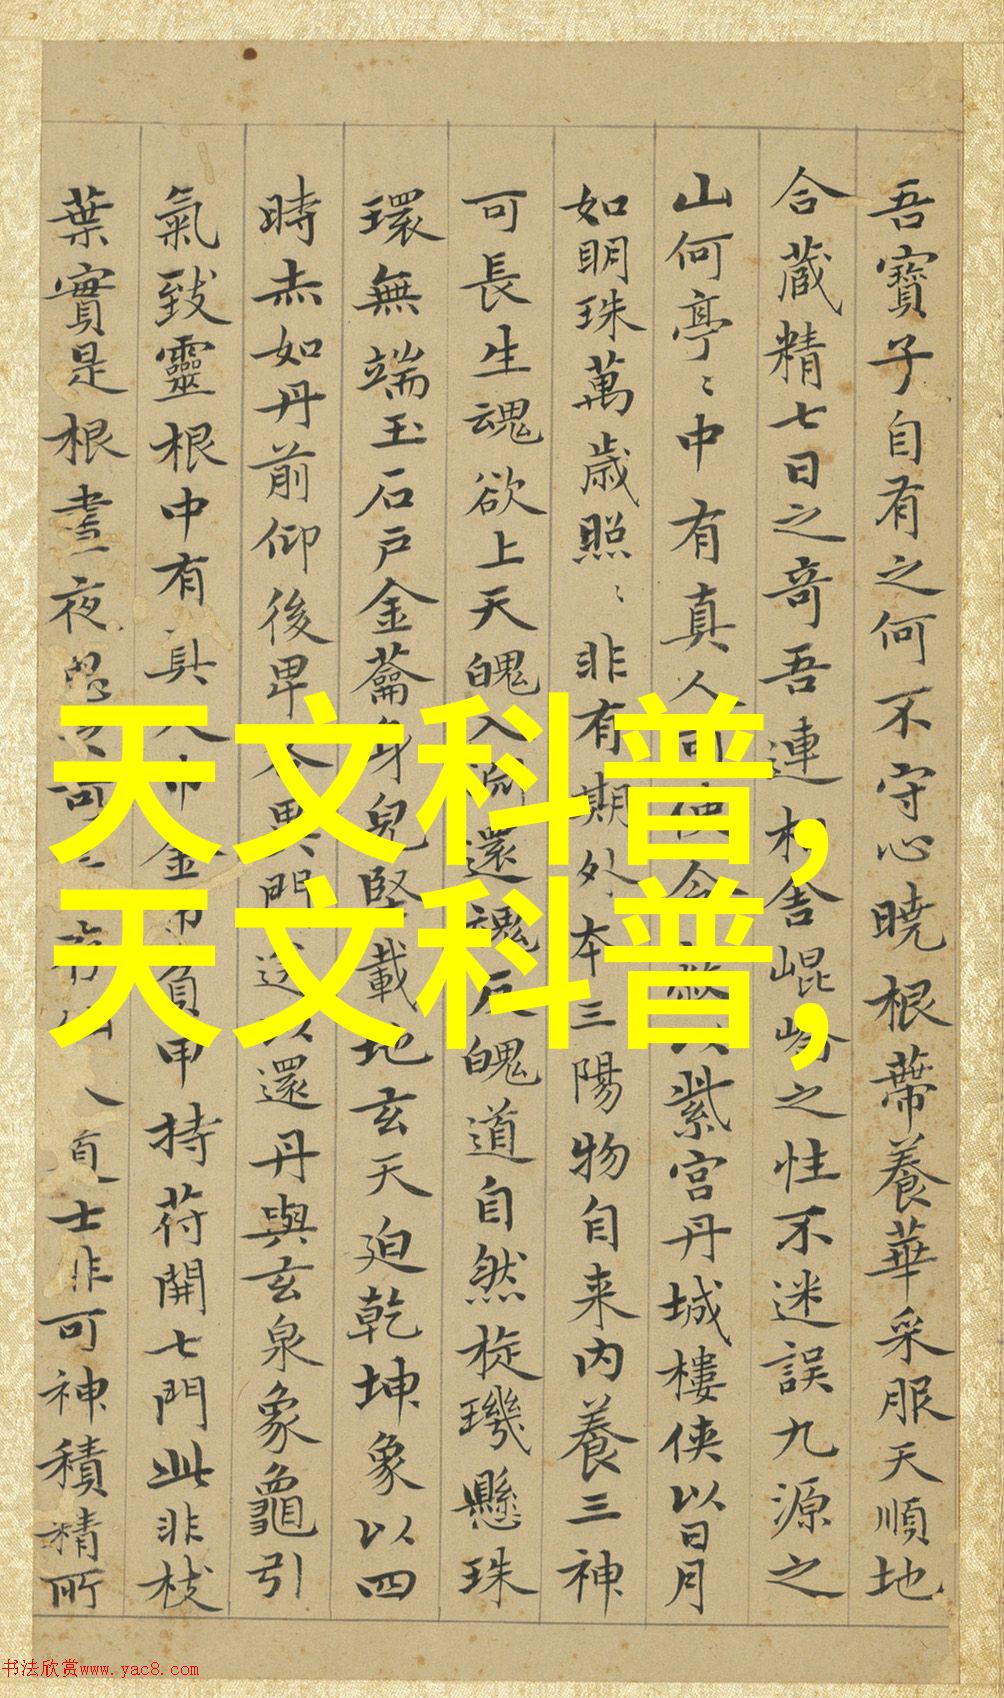 吾寶子自有之何不守心曉根蔕養華采服天順地
合蔵精七日之奇吾連相舍崐崘之性不迷誤九源之
山何亭〻中有真人可使令蔽以紫宮丹城樓俠以日月
如明珠萬歲照〻非有期外本三陽物自来内養三神
可長生魂欲上天魄入淵還魂反魄道自然旋璣懸珠
環無端玉石戶金蘥身兒堅載地玄天迫乾坤象以四
時赤如丹前仰後卑各異門送以還丹與玄泉象龜引
氣致靈根中有真人巾金巾負甲持苻開七門此非枝
葉實是根晝夜思 士非可神積精所
天文科普,
天文科普,
书法欣赏www.yac8.com